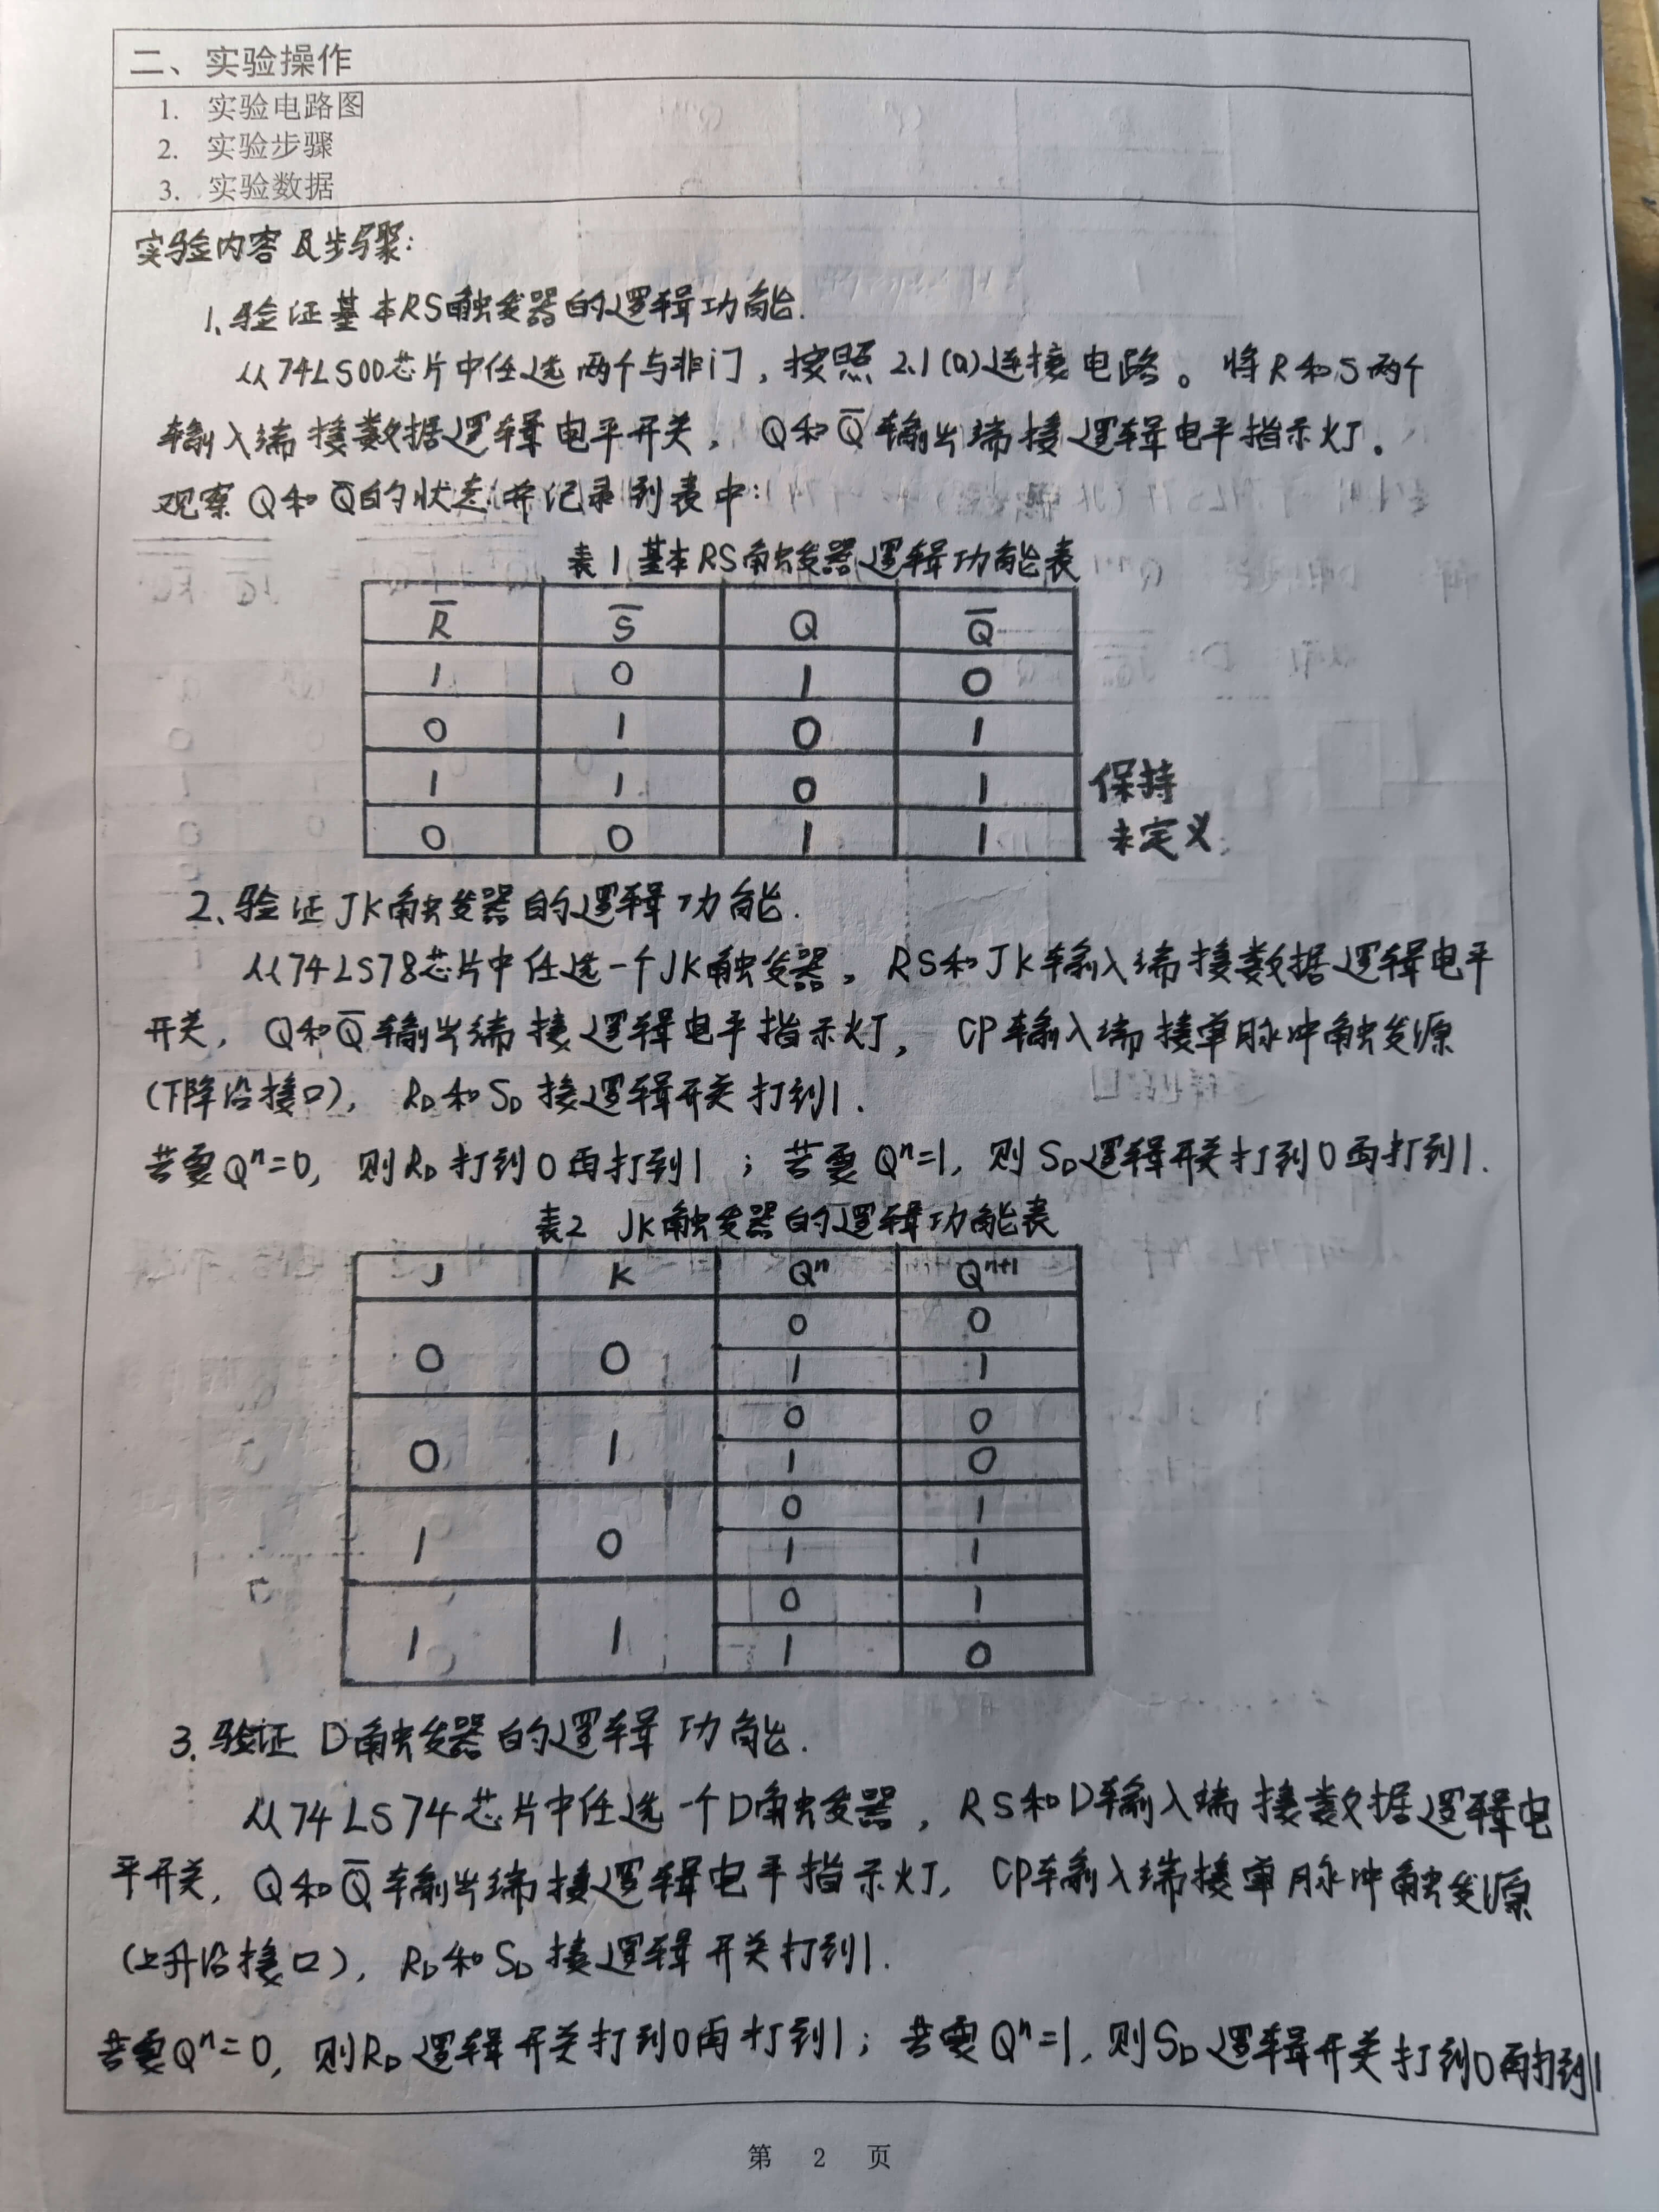 二、实验操作
1. 实验电路图
2. 实验步骤
3. 实验数据
实验内容及步骤:
1、验证基本RS触发器的逻辑功能.
从74LS00芯片中任选两个与非门,按照2.1(a)连接电路。将R和S两个
输入端接数据逻辑电平开关,Q和Q̅输出端接逻辑电平指示灯。
观察Q和Q̅的状态,并记录到表中:
表1 基本RS触发器逻辑功能表
R̅ S̅ Q Q̅
1 0 1 0
0 1 0 1
1 1 0 1 保持
0 0 1 1 未定义
2、验证JK触发器的逻辑功能.
从74LS78芯片中任选一个JK触发器,RS和JK输入端接数据逻辑电平
开关,Q和Q̅输出端接逻辑电平指示灯,CP输入端接单脉冲触发源
(下降沿接口),R_D和S_D接逻辑开关打到1.
若要Qⁿ=0,则R_D打到0再打到1;若要Qⁿ=1,则S_D逻辑开关打到0再打到1.
表2 JK触发器的逻辑功能表
J K Qⁿ Qⁿ⁺¹
0 0 0 0
1 1
0 1 0 0
1 0
1 0 0 1
1 1
1 1 0 1
1 0
3.验证D触发器的逻辑功能.
从74LS74芯片中任选一个D触发器,RS和D输入端接数据逻辑电
平开关,Q和Q̅输出端接逻辑电平指示灯,CP输入端接单脉冲触发源
(上升沿接口),R_D和S_D接逻辑开关打到1.
若要Qⁿ=0,则R_D逻辑开关打到0再打到1;若要Qⁿ=1,则S_D逻辑开关打到0再打到1
第 2 页